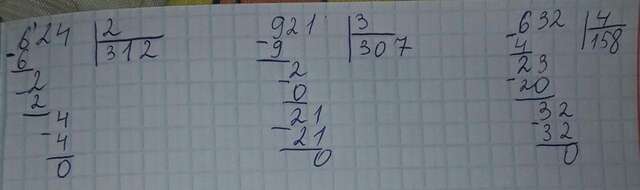 6'24 | 2
-6 | 312
-2
2
4
-4
0
921 | 3
-9 | 307
-2
0
21
-21
0
-632 | 4
4 | 158
-23
20
-32
32
0